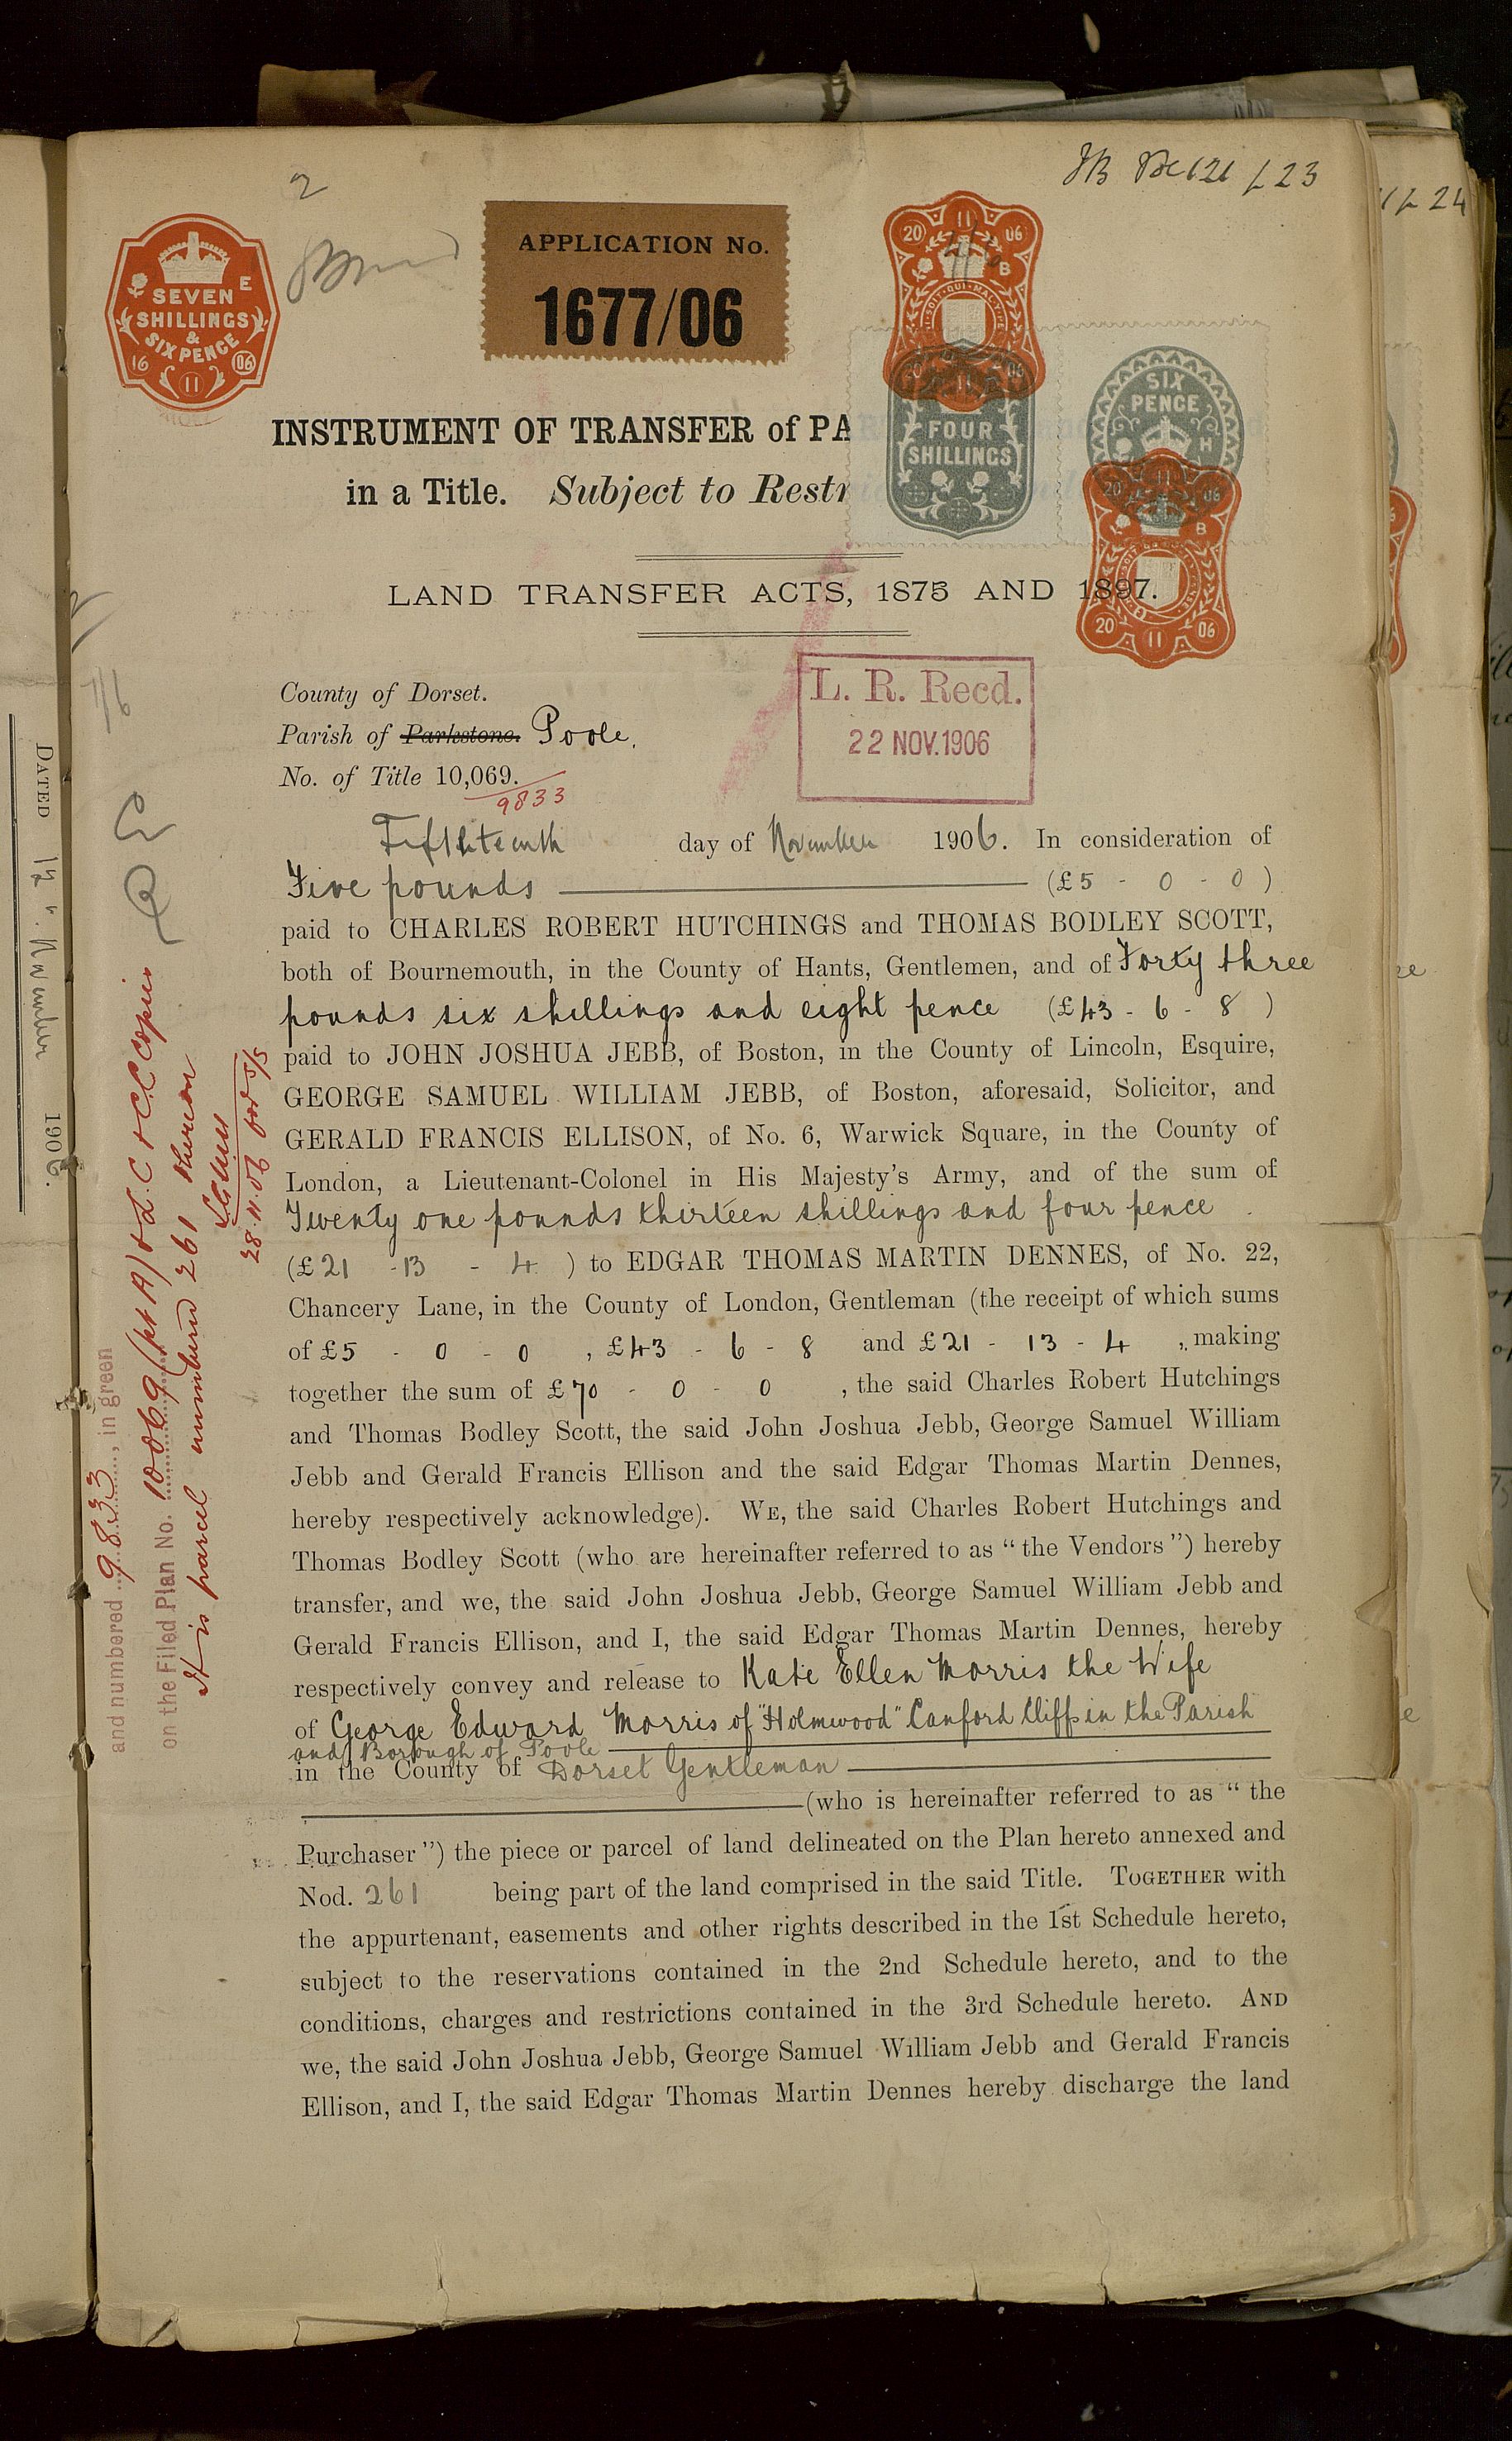 2
L 23
24
SEVEN
SHILLINGS
&
SIXPENCE
E
16 11 06
APPLICATION No.
1677/06
20 11 06
B
20 11 06
FOUR
SHILLINGS
SIX
PENCE
H
20 11 06
B
20 11 06
INSTRUMENT OF TRANSFER of PA
in a Title. Subject to Restr
LAND TRANSFER ACTS, 1875 AND 1897.
County of Dorset.
L. R. Recd.
22 NOV. 1906
Parish of Parkstone. Poole.
No. of Title 10,069.
9833
Fifteenth day of November 1906. In consideration of
Five pounds (£5 - 0 - 0)
paid to CHARLES ROBERT HUTCHINGS and THOMAS BODLEY SCOTT,
both of Bournemouth, in the County of Hants, Gentlemen, and of Forty three
pounds six shillings and eight pence (£43 - 6 - 8)
paid to JOHN JOSHUA JEBB, of Boston, in the County of Lincoln, Esquire,
GEORGE SAMUEL WILLIAM JEBB, of Boston, aforesaid, Solicitor, and
GERALD FRANCIS ELLISON, of No. 6, Warwick Square, in the County of
London, a Lieutenant-Colonel in His Majesty's Army, and of the sum of
Twenty one pounds thirteen shillings and four pence
(£21 - 13 - 4) to EDGAR THOMAS MARTIN DENNES, of No. 22,
Chancery Lane, in the County of London, Gentleman (the receipt of which sums
of £5 - 0 - 0, £43 - 6 - 8 and £21 - 13 - 4, making
together the sum of £70 - 0 - 0, the said Charles Robert Hutchings
and Thomas Bodley Scott, the said John Joshua Jebb, George Samuel William
Jebb and Gerald Francis Ellison and the said Edgar Thomas Martin Dennes,
hereby respectively acknowledge). WE, the said Charles Robert Hutchings and
Thomas Bodley Scott (who are hereinafter referred to as "the Vendors") hereby
transfer, and we, the said John Joshua Jebb, George Samuel William Jebb and
Gerald Francis Ellison, and I, the said Edgar Thomas Martin Dennes, hereby
respectively convey and release to Kate Ellen Morris the Wife
of George Edward Morris of "Holmwood" Canford Cliffs in the Parish
and Borough of Poole
in the County of Dorset Gentleman
(who is hereinafter referred to as "the
Purchaser") the piece or parcel of land delineated on the Plan hereto annexed and
Nod. 261 being part of the land comprised in the said Title. TOGETHER with
the appurtenant, easements and other rights described in the 1st Schedule hereto,
subject to the reservations contained in the 2nd Schedule hereto, and to the
conditions, charges and restrictions contained in the 3rd Schedule hereto. AND
we, the said John Joshua Jebb, George Samuel William Jebb and Gerald Francis
Ellison, and I, the said Edgar Thomas Martin Dennes hereby discharge the land
DATED November 1906.
and numbered 9833, in green
on the Filed Plan No. 10069 (pt A) & L.C & C.C copies
It is parcel numbered 261 thereon
28.11.06